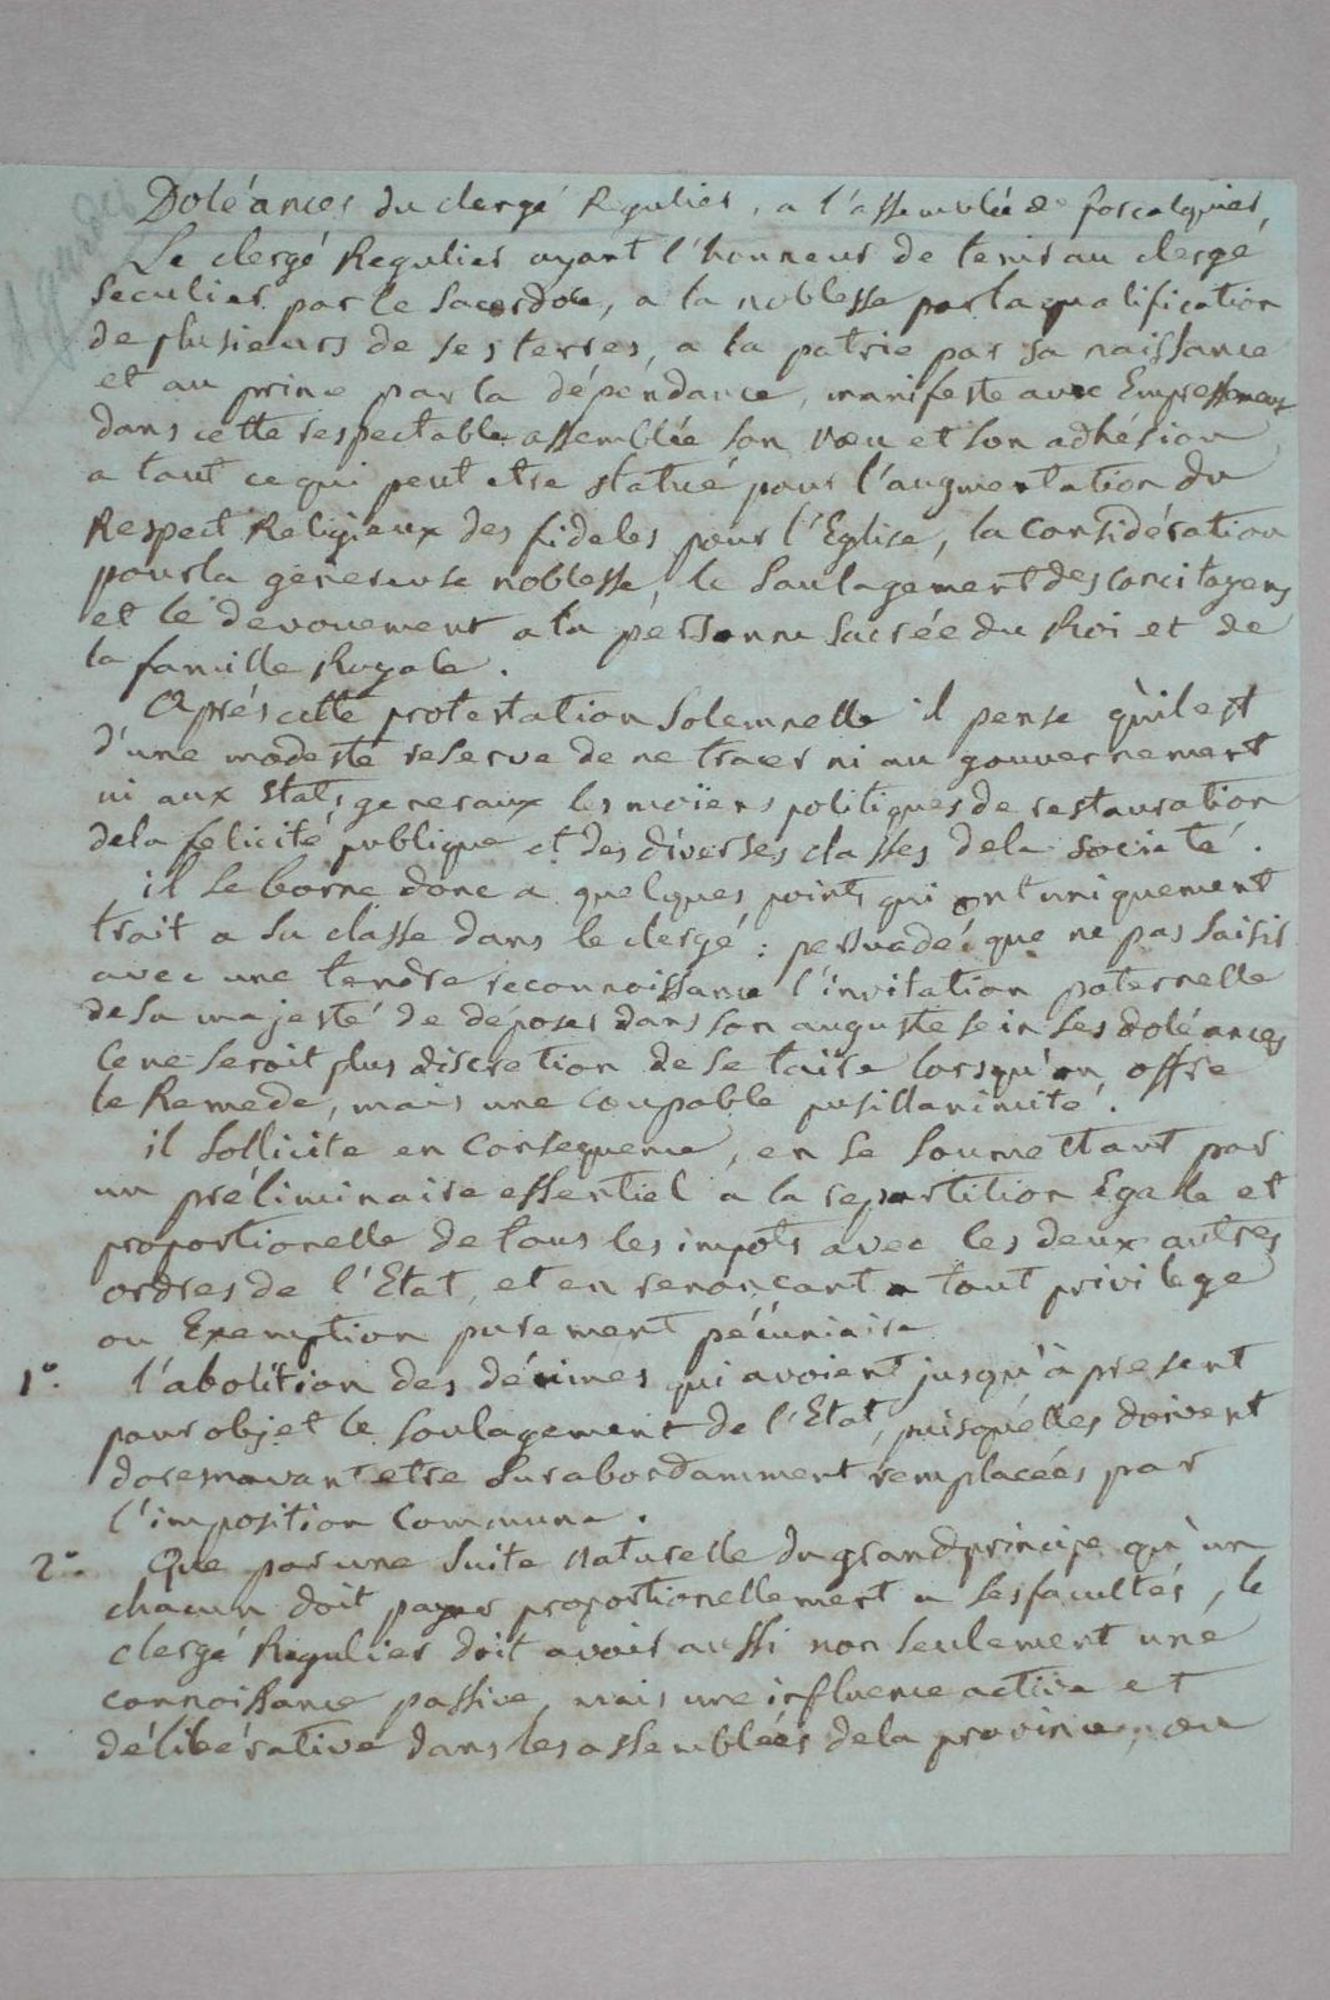 Doléances du clergé Regulier, a l'assemblée de forcalquier,
Le clergé Regulier ayant l'honneur de tenir au clergé
seculier par le sacerdoce, a la noblesse par la qualification
de plusieurs de ses terres, a la patrie par sa naissance
et au prince par la dépéndance, manifeste avec Empressement
dans cette respectable assemblée son vœu et son adhésion
a tout ce qui peut etre statué pour l'augmentation du
Respect Religieux des fideles pour l'Eglise, la Considération
pour la genereuse noblesse, le soulagement des concitoyens
et le devouement a la personne sacrée du Roi et de
la famille Royale.
Aprés cette protestation solemnelle il pense qu'il est
d'une modeste reserve de ne tracer ni au gouvernement
ni aux Etats generaux les moïens politiques de restauration
de la félicité publique et des diverses classes de la societé.
il se borne donc a quelques points qui ont uniquement
trait a sa classe dans le clergé : persuadé que ne pas saisir
avec une tendre reconnoissance l'invitation paternelle
de sa majesté de déposer dans son auguste sein ses doléances
ce ne seroit plus discretion de se taire lorsqu'on offre
le Remede, mais une coupable pusillanimité.
il sollicite en Consequence, en se soumettant par
un préliminaire essentiel a la repartition Egale et
proportionelle de tous les impots avec les deux autres
ordres de l'Etat, et en renonçant a tout privilege
ou Exemption purement pécuniaire
1°. l'abolition des décimes qui avoient jusqu'à present
pour objet le soulagement de l'Etat, puisqu'elles doivent
doresnavant etre surabordamment remplacées par
l'imposition Commune.
2°. Que par une suite naturelle du grand principe qu'un
chacun doit payer proportionellement a ses facultés, le
clergé Regulier doit avoir aussi non seulement une
connoissance passive, mais une influence active et
délibérative dans les assemblées de la province, ou